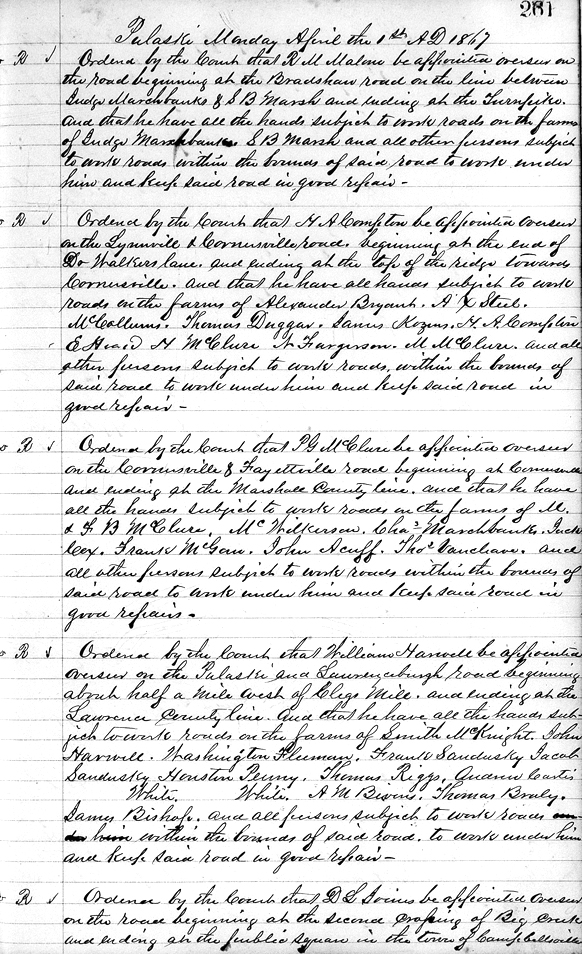 261
Pulaski Monday April the 1st A D 1867
R Ordered by the Court that R M Malone be appointed overseer on
the road beginning at the Bradshaw road on the line between
Judge Marchbanks & S B Marsh and ending at the Turnpike.
And that he have all the hands subject to work roads on the farms
of Judge Marchbanks S B Marsh and all other persons subject
to work roads within the bounds of said road to work under
him and keep said road in good repair -
R Ordered by the Court that H A Compton be appointed overseer
on the Lynnville & Cornersville road. beginning at the end of
Dr Walkers lane. and ending at the top of the ridge towards
Cornersville. and that he have all hands subject to work
roads on the farms of Alexander Bryant. A X Steel.
McCollums. Thomas Duggar. James H. A. Compton
E H McClure N Fargerson. M McClure. and all
other persons subject to work roads, within the bounds of
said road to work under him and keep said road in
good repair -
R Ordered by the Court that P G McClure be appointed overseer
on the Cornersville & Fayettville road beginning at Cornersville
and ending at the Marshall County line. and that he have
all the hands subject to work roads on the farms of M.
& F B McClure, Mc Wilkerson. Chas Marchbanks. Jack
Cox. Frank McGaw. John Acuff. Thos Vanclave. and
all other persons subject to work roads within the bounds of
said road to work under him and keep said road in
good repairs -
R Ordered by the Court that William Harwell be appointed
overseer on the Pulaski and Lawrenceburgh road beginning
about half a mile west of Clegs Mill. and ending at the
Lawrence County line. And that he have all the hands sub-
ject to work roads on the farms of Smith McKnight. John
Harwell. Washington Fleeman. Frank Sandusky Jacob
Sandusky Houston Penny. Thomas Riggs, Curtis
White. White. A M Bevens. Thomas Braly.
James Bishop. and all persons subject to work roads un-
der him within the bounds of said road. to work under him
and keep said road in good repair -
R Ordered by the Court that D L Joines be appointed overseer
on the road beginning at the second crossing of Big Creek
and ending at the public square in the town of Campbellsville